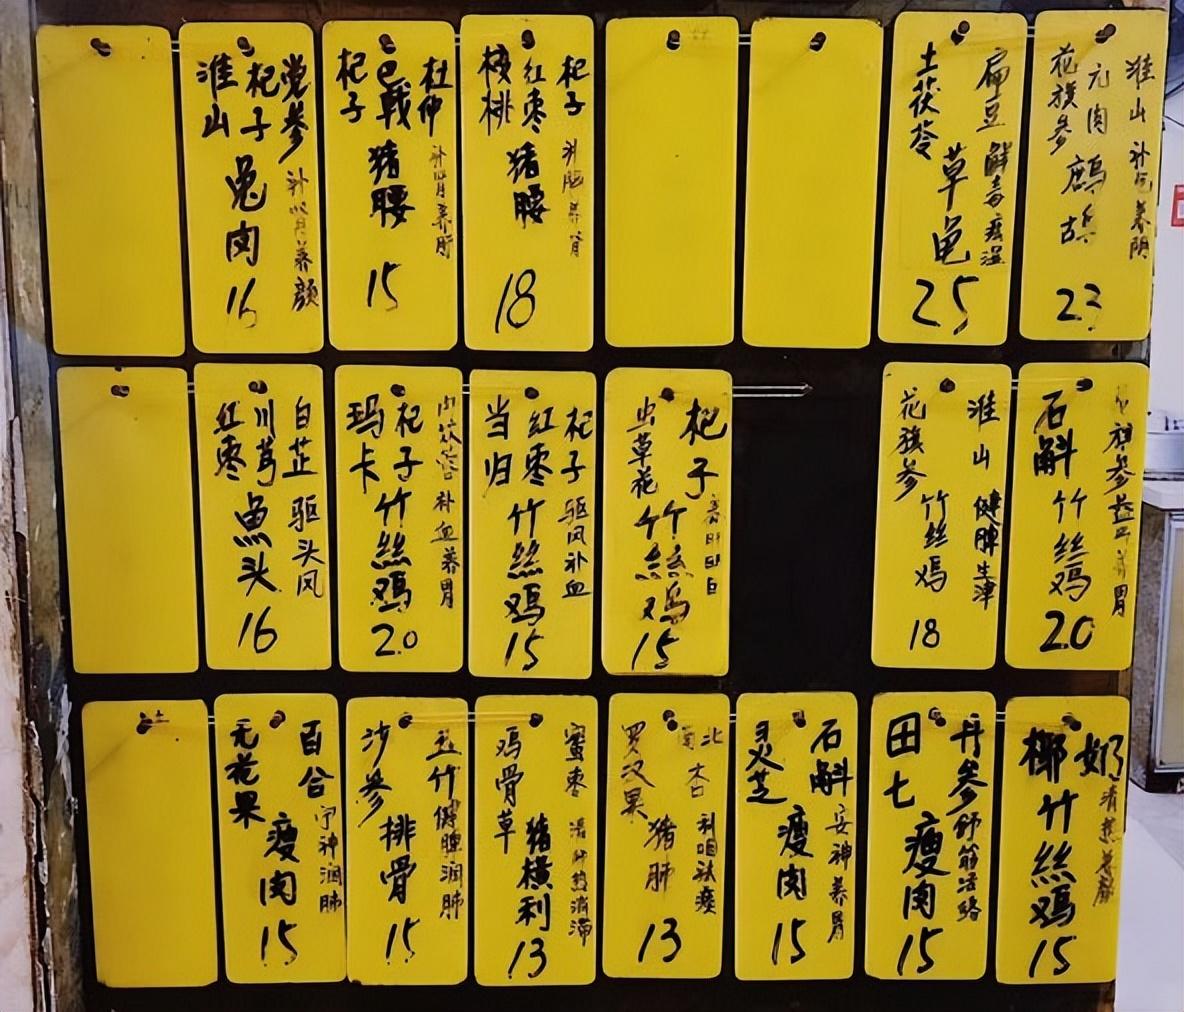 党参
杞子
淮山
兔肉
补肾养颜
16
杜仲
巴戟
杞子
猪腰
补肾养肝
15
杞子
红枣
核桃
猪腰
补脑养肾
18
扁豆
土茯苓
草龟
解毒祛湿
25
淮山
元肉
花旗参
鹧鸪
补气养阴
23
白芷
川芎
红枣
鱼头
驱头风
16
杞子
玛卡
竹丝鸡
补血养胃
20
杞子
红枣
当归
竹丝鸡
驱风补血
15
杞子
虫草花
竹丝鸡
15
淮山
花旗参
竹丝鸡
健脾生津
18
石斛
竹丝鸡
20
百合
无花果
瘦肉
宁神润肺
15
玉竹
沙参
排骨
健脾润肺
15
蜜枣
鸡骨草
猪横利
13
南北杏
罗汉果
猪肺
利咽祛痰
13
石斛
灵芝
瘦肉
安神养胃
15
丹参
田七
瘦肉
舒筋活络
15
椰奶
竹丝鸡
15